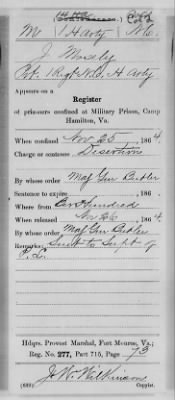 M | H Arty | N.C.
J. Mosely
Pvt. 1 Regt N.C. H Arty
Appears on a
Register
of prisoners confined at Military Prison, Camp
Hamilton, Va.
When confined Nov 25, 1864.
Charge or sentence Desertion
By whose order Maj Gen Butler
Sentence to expire , 186 .
Where from Ber Hundred
When released Nov 26, 1864.
By whose order Maj Gen Butler
Remarks: Sent to Supt of
P. L.
Hdqrs. Provost Marshal, Fort Monroe, Va.;
Reg. No. 277, Part 715, Page 73
J. W. Wilkinson
(639) Copyist.